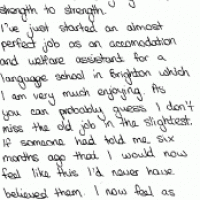 strength to strength.
I've just started an almost
perfect job as an accomodation
and welfare assistant for a
language school in Brighton which
I am very much enjoying. As
you can probably guess I don't
miss the old job in the slightest.
If someone had told me six
months ago that I would now
feel like this I'd never have
believed them. I now feel as